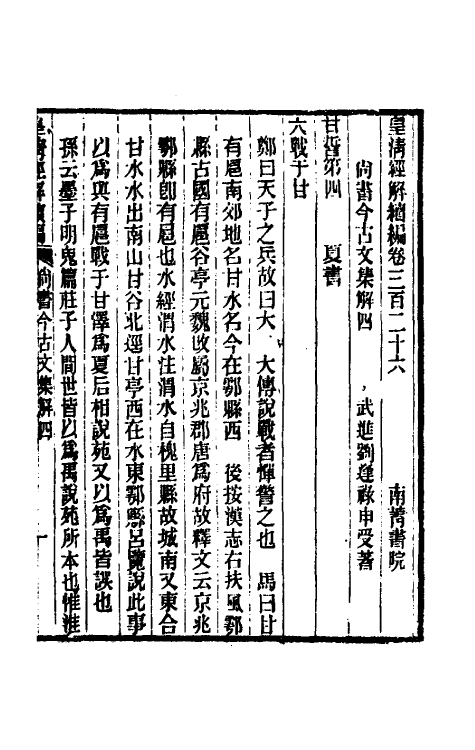 皇淸經解續編卷三百二十六
南菁書院
尙書今古文集解四
武進劉逢祿申受著
甘誓第四　夏書
大戰于甘
鄭曰天子之兵故曰大　大傳說戰者憚警之也　馬曰甘
有扈南郊地名甘水名今在鄠縣西　後按漢志右扶風鄠
縣古國有扈谷亭元魏改屬京兆郡唐爲府故釋文云京兆
鄠縣卽有扈也水經渭水注渭水自槐里縣故城南又東合
甘水水出南山甘谷北逕甘亭西在水東鄠縣呂覽說此事
以爲與有扈戰于甘澤爲夏后相說苑又以爲禹皆誤也
孫云墨子明鬼篇莊子人間世皆以爲禹說苑所本也惟淮
皇淸經解續編　尙書今古文集解四　一